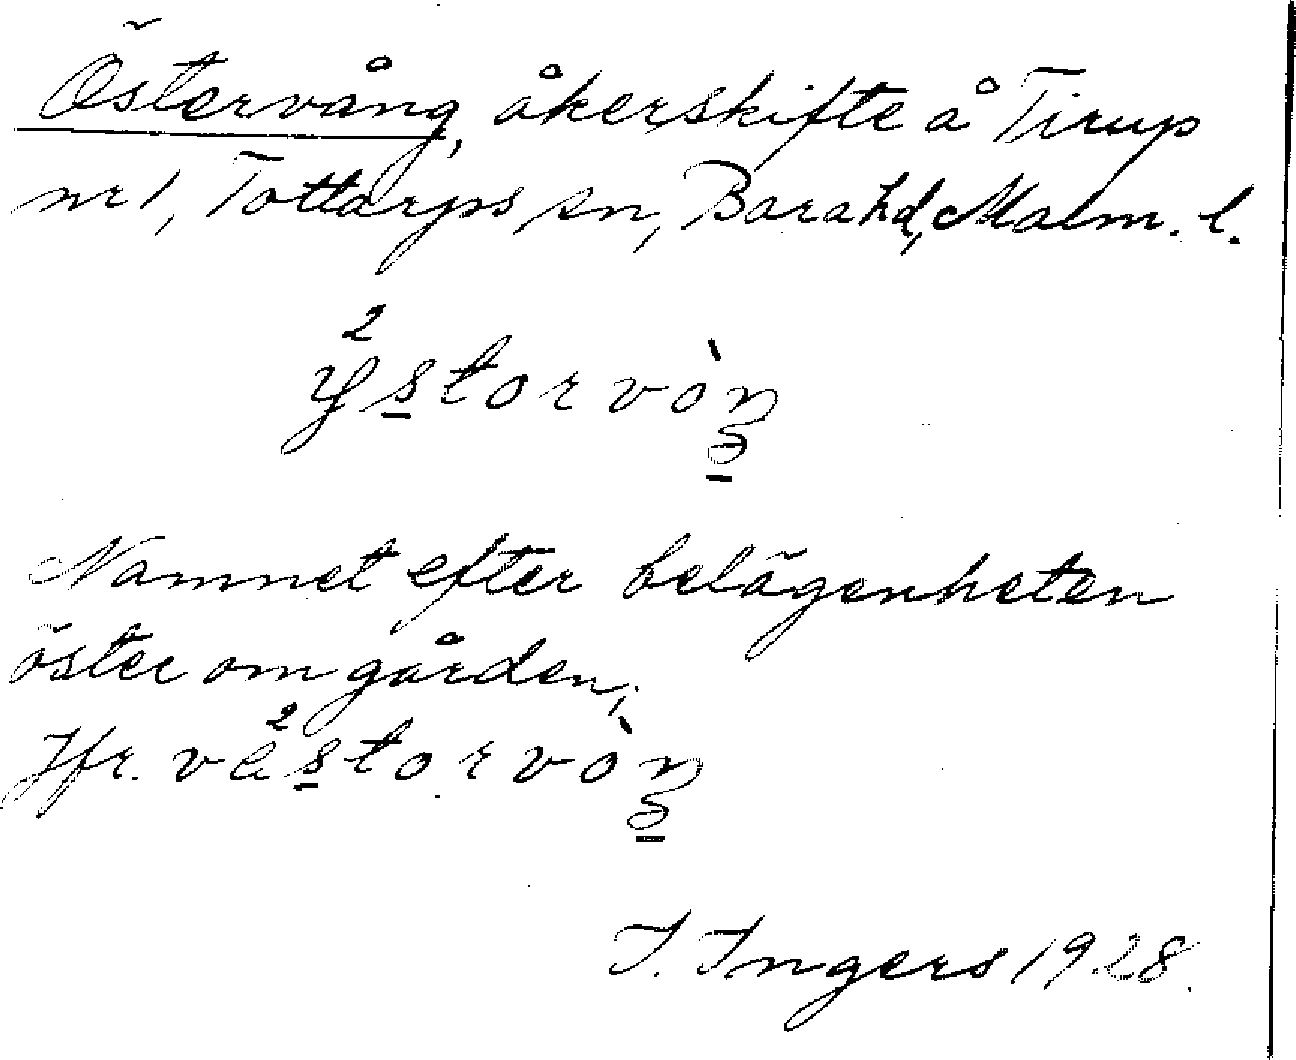 Östervång, åkerskifte å Tirup
nr 1, Tottarps sn, Bara hd, Malm. l.
Namnet efter belägenheten
öster om gården;
Jfr.
I. Ingers 1928.